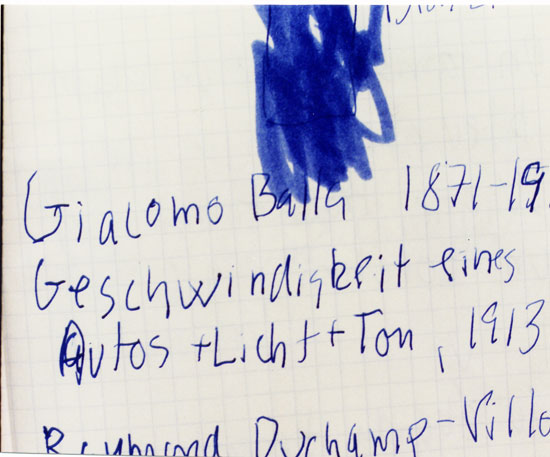 Giacomo Balla 1871-19
Geschwindigkeit eines
Autos + Licht + Ton, 1913
Raymond Duchamp-Villo